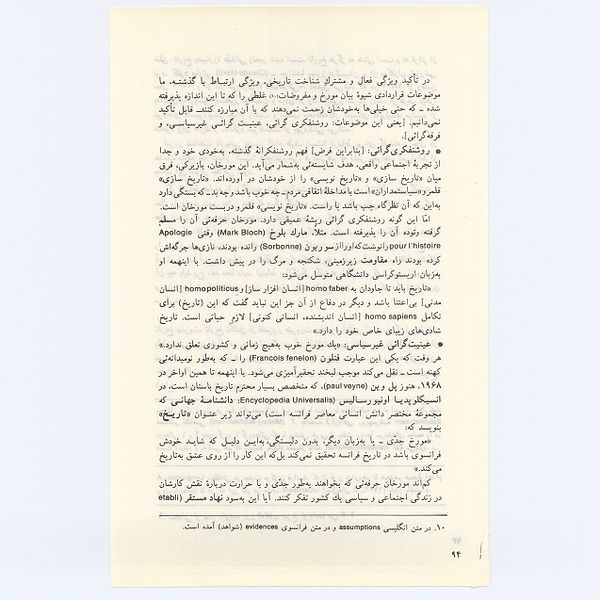 در تأکید ویژگی فعال و مشترک شناخت تاریخی، ویژگی ارتباط با گذشته، ما
موضوعات قراردادی شیوهٔ بیان مورخ و مفروضات(۱۰) غلطی را که تا این اندازه پذیرفته
شده ـ که حتی خیلی‌ها به‌خودشان زحمت نمی‌دهند که با آن مبارزه کنند ـ قابل تأکید
نمی‌دانیم. [یعنی این موضوعات: روشنفکری گرائی، عینیت گرائی غیرسیاسی، و
فرقه‌گرائی].
● روشنفکری‌گرائی: [بنابراین فرض] فهم روشنفکرانهٔ گذشته، به‌خودی خود و جدا
از تجربهٔ اجتماعی واقعی، هدف شایسته‌ئی به‌شمار می‌آید. این مورخان، بازیرکی، فرق
میان «تاریخ سازی» و «تاریخ نویسی» را از خودشان در آورده‌اند. «تاریخ سازی»
قلمرو «سیاستمداران» است با مداخلهٔ اتفاقی مردم ـ چه خوب باشد و چه بد ـ که بستگی دارد
به‌این که آن نظرگاه چپ باشد یا راست. «تاریخ نویسی» قلمرو دربست مورخان است.
امّا این گونه روشنفکری گرائی ریشهٔ عمیقی دارد. مورخان حرفه‌ئی آن را مسلم
گرفته وتوده آن را پذیرفته است. مثلاً، مارک بلوخ (Mark Bloch) وقتی Apologie
pour l'histoire را نوشت که او را از سوربون (Sorbonne) رانده بودند، نازی‌ها جرگه‌اش
کرده بودند راه مقاومت زیرزمینی، شکنجه و مرگ را در پیش داشت. با اینهمه او
به‌زبان اریستوکراسی دانشگاهی متوسل می‌شود:
«تاریخ باید تا جاودان به homo faber [انسان افزار ساز] و homo politicus [انسان
مدنی] بی‌اعتنا باشد و دیگر در دفاع از آن جز این نباید گفت که این (تاریخ) برای
تکامل homo sapiens [انسان اندیشنده، انسانی کنونی] لازمِ حیاتی است. تاریخ
شادی‌های زیبای خاص خود را دارد.»
● عینیت‌گرائی غیرسیاسی: «یک مورخ خوب به‌هیچ زمانی و کشوری تعلق ندارد.»
هر وقت که یکی این عبارت فنلون (Francois fenelon) را ـ که به‌طور نومیدانه‌ئی
کهنه است ـ نقل می‌کند موجب لبخند تحقیرآمیزی می‌شود. با اینهمه تا همین اواخر در
۱۹۶۸، هنوز پل وین (paul veyne)، که متخصص بسیار محترم تاریخ باستان است، در
انسیکلوپدیا اونیورسالیس (Encyclopedia Universalis): دانشنامهٔ جهانی که
مجموعهٔ مختصر دانش انسانی معاصر فرانسه است) می‌تواند زیر عنوان «تاریخ»
بنویسد که:
«مورخ جدّی ـ یا به‌زبان دیگر، بدون دلبستگی، به‌این دلیل که شاید خودش
فرانسوی باشد در تاریخ فرانسه تحقیق نمی‌کند بل‌که این کار را از روی عشق به‌تاریخ
می‌کند.»
کم‌اند مورخان حرفه‌ئی که بخواهند به‌طور جدّی و با حرارت دربارهٔ نقش کارشان
در زندگی اجتماعی و سیاسی یک کشور تفکر کنند. آیا این به‌سود نهاد مستقر (etabli
۱۰. در متن انگلیسی assumptions و در متن فرانسوی evidences (شواهد) آمده است.
۹۴